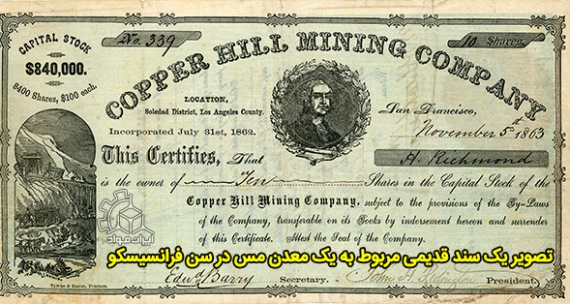 CAPITAL STOCK
$840,000.
8400 Shares, $100 each.
No. 339
10 Shares
COPPER HILL MINING COMPANY
LOCATION,
Soledad District, Los Angeles County.
Incorporated July 31st, 1862.
San Francisco,
November 5th 1863
This Certifies, That
H. Richmond
is the owner of Ten Shares in the Capital Stock of the
Copper Hill Mining Company, subject to the provisions of the By-Laws
of the Company, transferable on its Books by indorsement hereon and surrender
of this Certificate. Attest the Seal of the Company.
ایران مواد
تصویر یک سند قدیمی مربوط به یک معدن مس در سن فرانسیسکو
Edwd Barry Secretary. President.
Towne & Bacon, Printers.